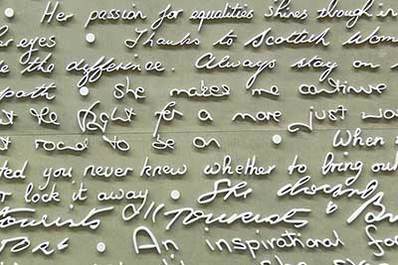 Her passion for equalities shines through in
her eyes Thanks to Scottish Wom
the difference. Always stay on
path She makes me continue
the fight for a more just wo
road to be on When
ted you never knew whether to bring out
r lock it away She
Tourists " Tourists &
work An inspirational fo